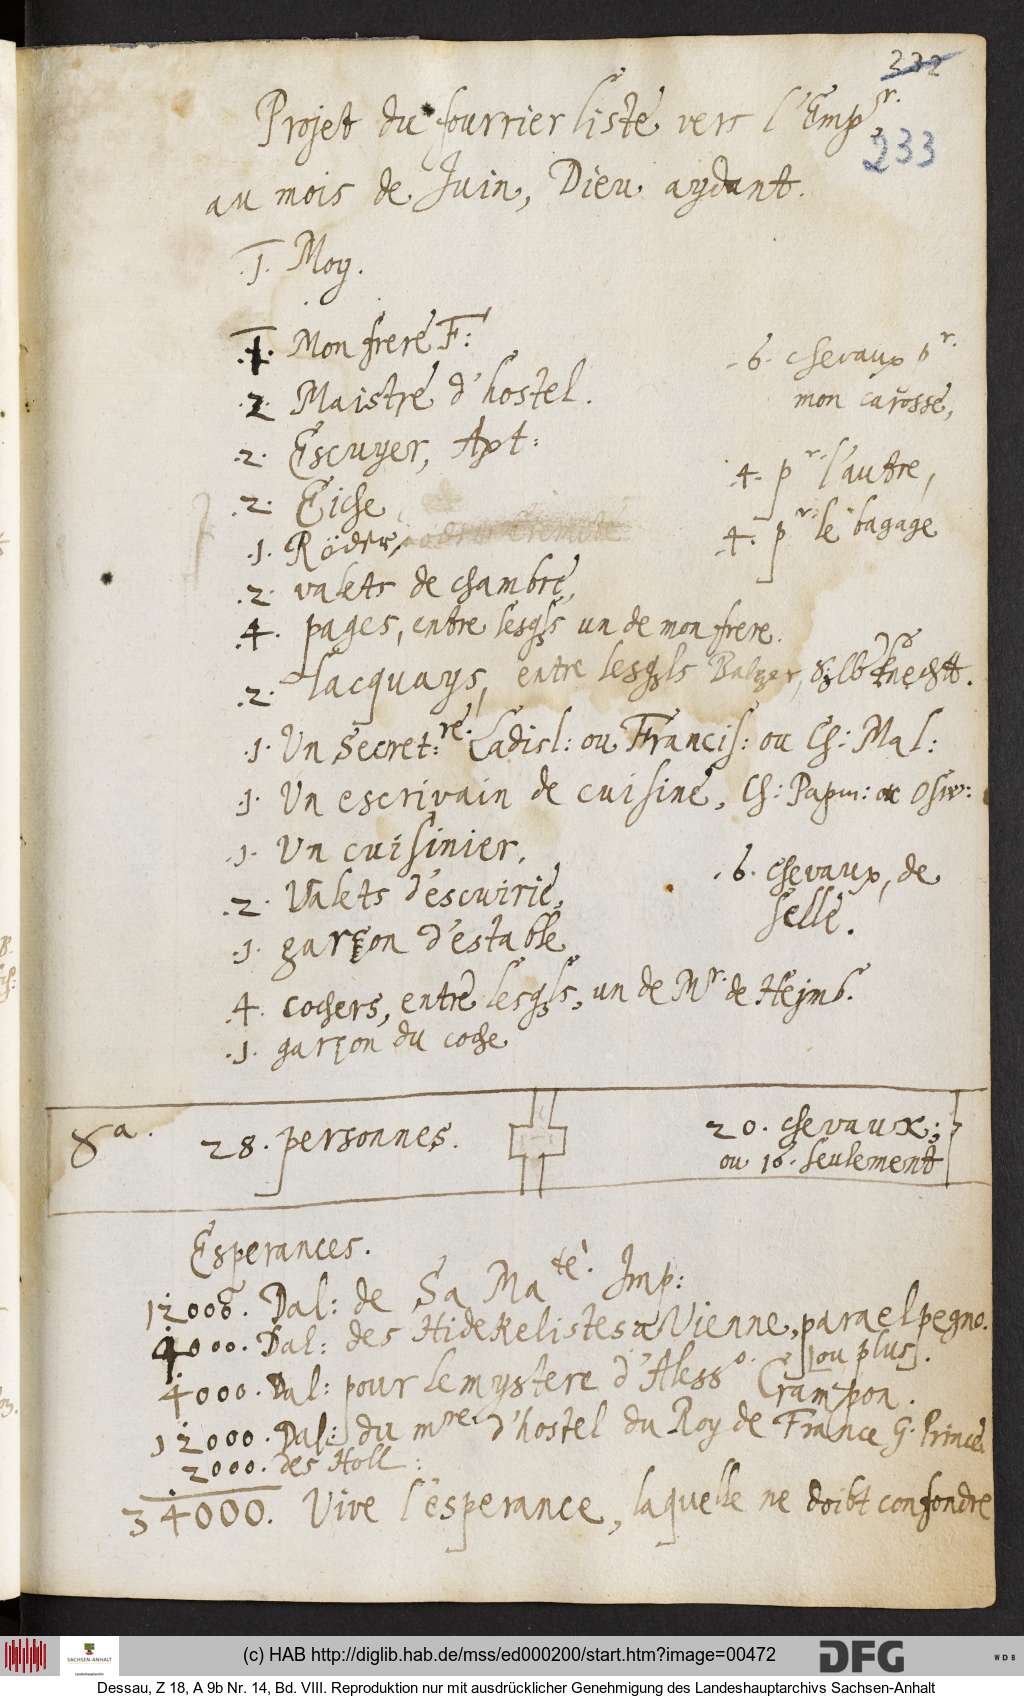 232
Projet du fourrier liste vers l'Emp.r.
233
au mois de Juin, Dieu aydant.
.1. Moy.
.1. Mon frere F:
.2. Maistre d'hostel.
.2. Escuyer, Axt:
.2. Eiche
.1. Röder,
.2. valets de chambre,
.4. pages, entre lesqls un de mon frere.
.2. lacquays, entre lesqls Balzer, Silbknecht.
.1. Un Secret:re. Ladisl: ou Francis: ou Ch: Mal:
.1. Un escrivain de cuisine, Ch: Papm: ou Osw:
.1. Un cuisinier.
.2. Valets d'escuirie,
.1. garçon d'estable
.4. cochers, entre lesqls, un de Mr. de Hejmb.
.1. garçon du coche
.6. chevaux pr.
mon carosse,
.4. pr. l'autre,
.4. pr. le bagage
.6. chevaux, de
selle.
Sa. 28. personnes.
20. chevaux;
ou 16. seulement
Esperances.
12000. Dal: de Sa Ma.té. Imp:
4000. Dal: des Hidekelistes a Vienne, para el pegno.
[ou plus].
4000. Dal: pour le mystere d'Alesso. Crampon.
12000. Dal: du mre. d'hostel du Roy de France G. Prince.
2000. des Holl:
34000. Vive l'esperance, laquelle ne doibt confondre
(c) HAB http://diglib.hab.de/mss/ed000200/start.htm?image=00472
SACHSEN-ANHALT
Landeshauptarchiv
DFG
WDB
Dessau, Z 18, A 9b Nr. 14, Bd. VIII. Reproduktion nur mit ausdrücklicher Genehmigung des Landeshauptarchivs Sachsen-Anhalt